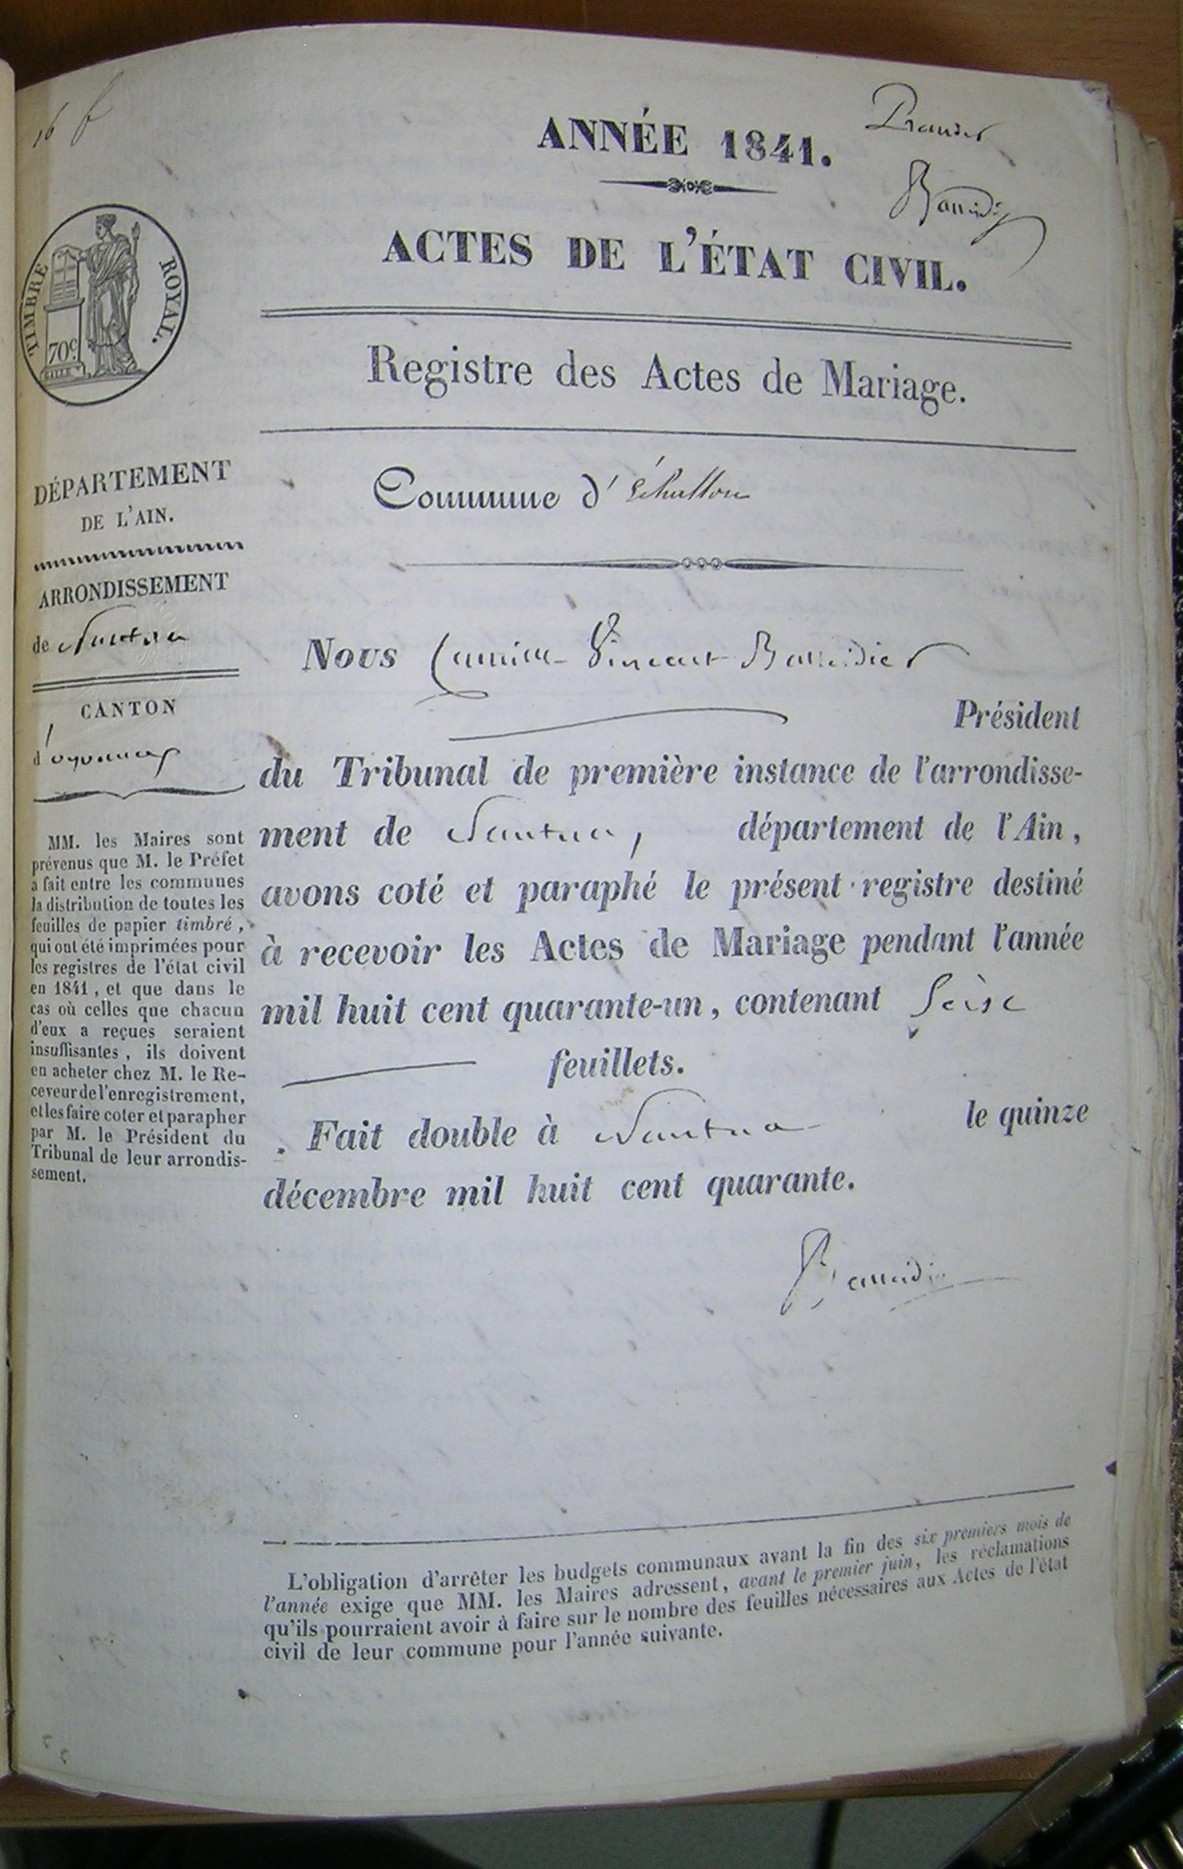 16 f
ANNÉE 1841.
Premier
TIMBRE ROYAL.
70c
ACTES DE L'ÉTAT CIVIL.
Registre des Actes de Mariage.
DÉPARTEMENT
DE L'AIN.
ARRONDISSEMENT
de Nantua
CANTON
d'oyonnax
MM. les Maires sont
prévenus que M. le Préfet
a fait entre les communes
la distribution de toutes les
feuilles de papier timbré,
qui ont été imprimées pour
les registres de l'état civil
en 1841, et que dans le
cas où celles que chacun
d'eux a reçues seraient
insuffisantes, ils doivent
en acheter chez M. le Re-
ceveur de l'enregistrement,
et les faire coter et parapher
par M. le Président du
Tribunal de leur arrondis-
sement.
Commune d'Échallon
Nous Camille Vincent
Président
du Tribunal de première instance de l'arrondisse-
ment de Nantua, département de l'Ain,
avons coté et paraphé le présent registre destiné
à recevoir les Actes de Mariage pendant l'année
mil huit cent quarante-un, contenant Seise
feuillets.
Fait double à Nantua le quinze
décembre mil huit cent quarante.
L'obligation d'arrêter les budgets communaux avant la fin des six premiers mois de
l'année exige que MM. les Maires adressent, avant le premier juin, les réclamations
qu'ils pourraient avoir à faire sur le nombre des feuilles nécessaires aux Actes de l'état
civil de leur commune pour l'année suivante.